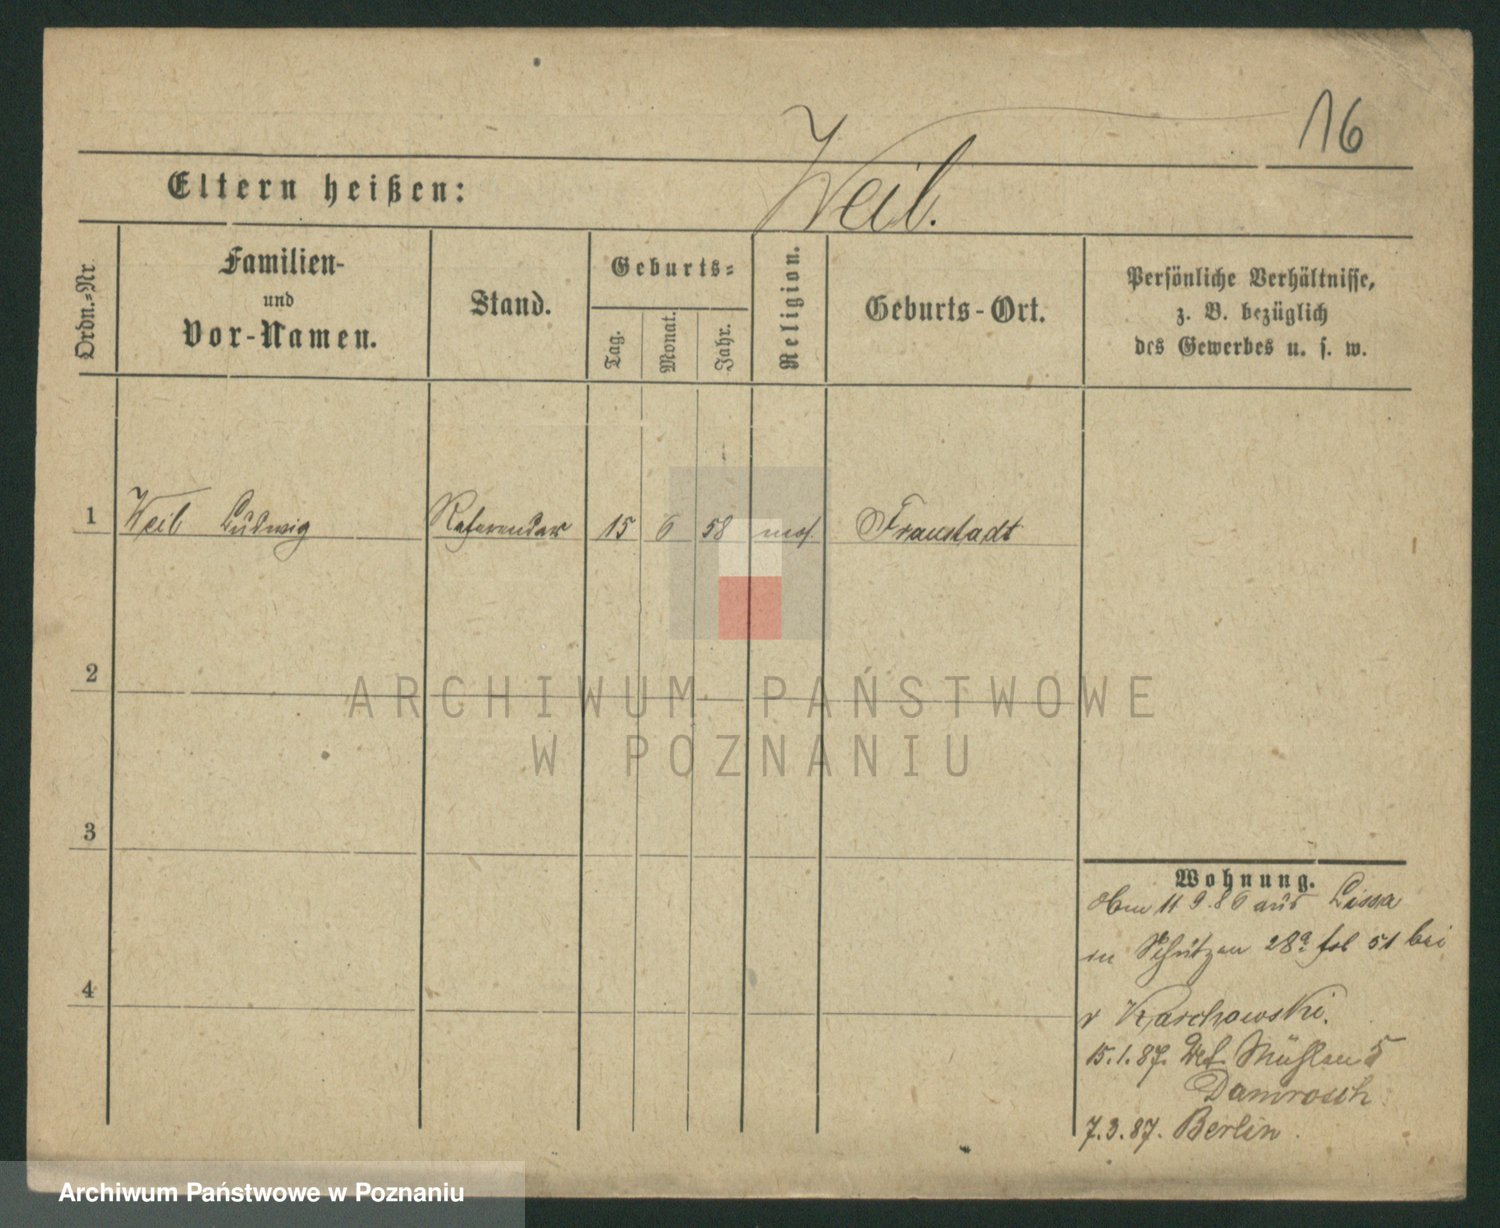 16
Weil.
Eltern heißen:
Ordn.=Nr.
Familien-
und
Vor-Namen.
Stand.
Geburts=
Tag.
Monat.
Jahr.
Religion.
Geburts-Ort.
Persönliche Verhältnisse,
z. B. bezüglich
des Gewerbes u. s. w.
1 Weil Ludwig Referendar 15 6 58 mos. Fraustadt
2
3
4
ARCHIWUM PAŃSTWOWE
W POZNANIU
Wohnung.
11 9. 86 aus Lissa
in Schützen 28a fol 51 bei
v Karchowski.
15.1.87. Mühlen 5
Damrosch
7.3.87. Berlin.
Archiwum Państwowe w Poznaniu